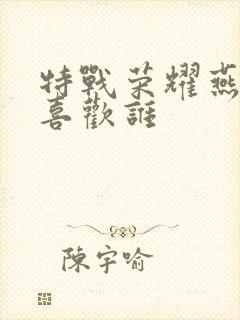 特戰荣耀燕
喜歡誰
陳宇喻